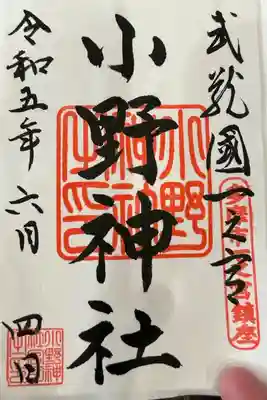 武蔵國一之宮
多摩市一之宮鎮座
小野神社
小野神社之印
令和五年 六月 四日